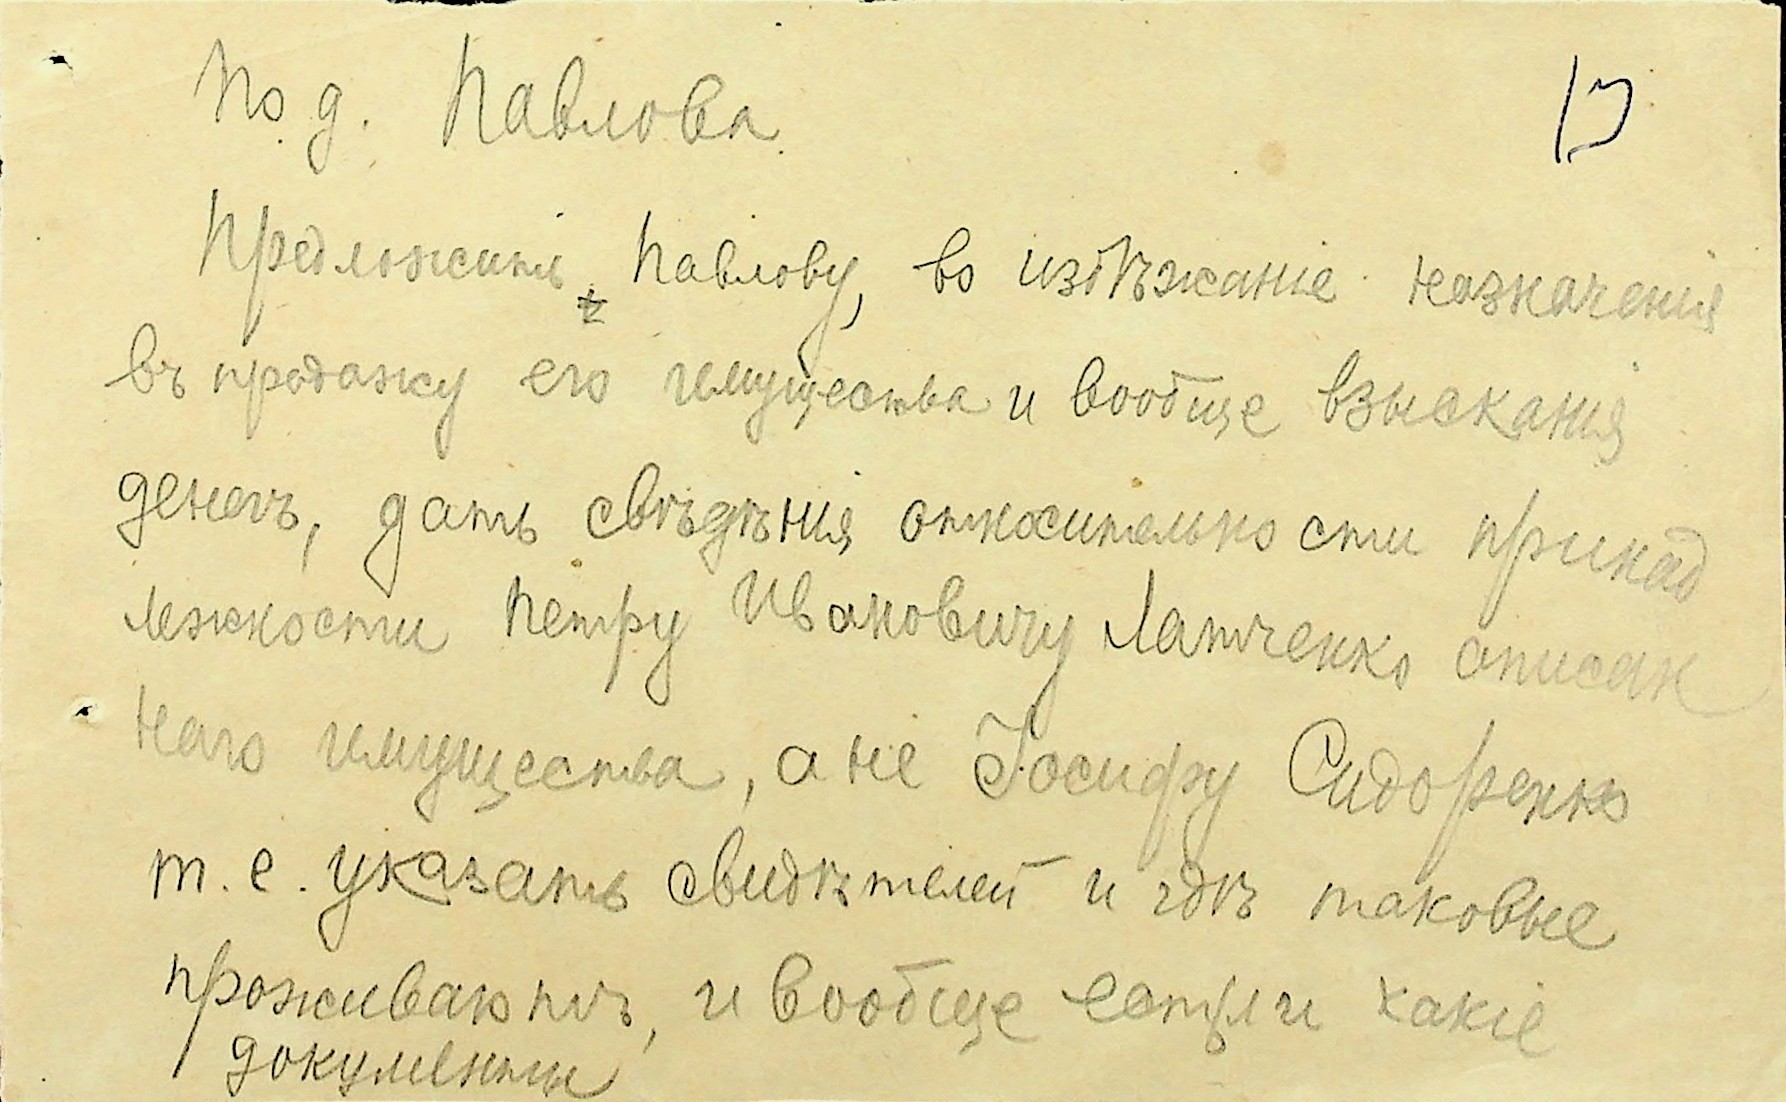 По д. Павлова
13
Предложить Павлову, во избѣжаніе назначенія
въ продажу его имущества и вообще взысканія
денегъ, дать свѣдѣнія относительности принад
лежности Петру Ивановичу Латченко описан
наго имущества, а не Іосифу Сидоренко
т. е. указать свидѣтелей и гдѣ таковые
проживаютъ, и вообще есть ли какіе
документы